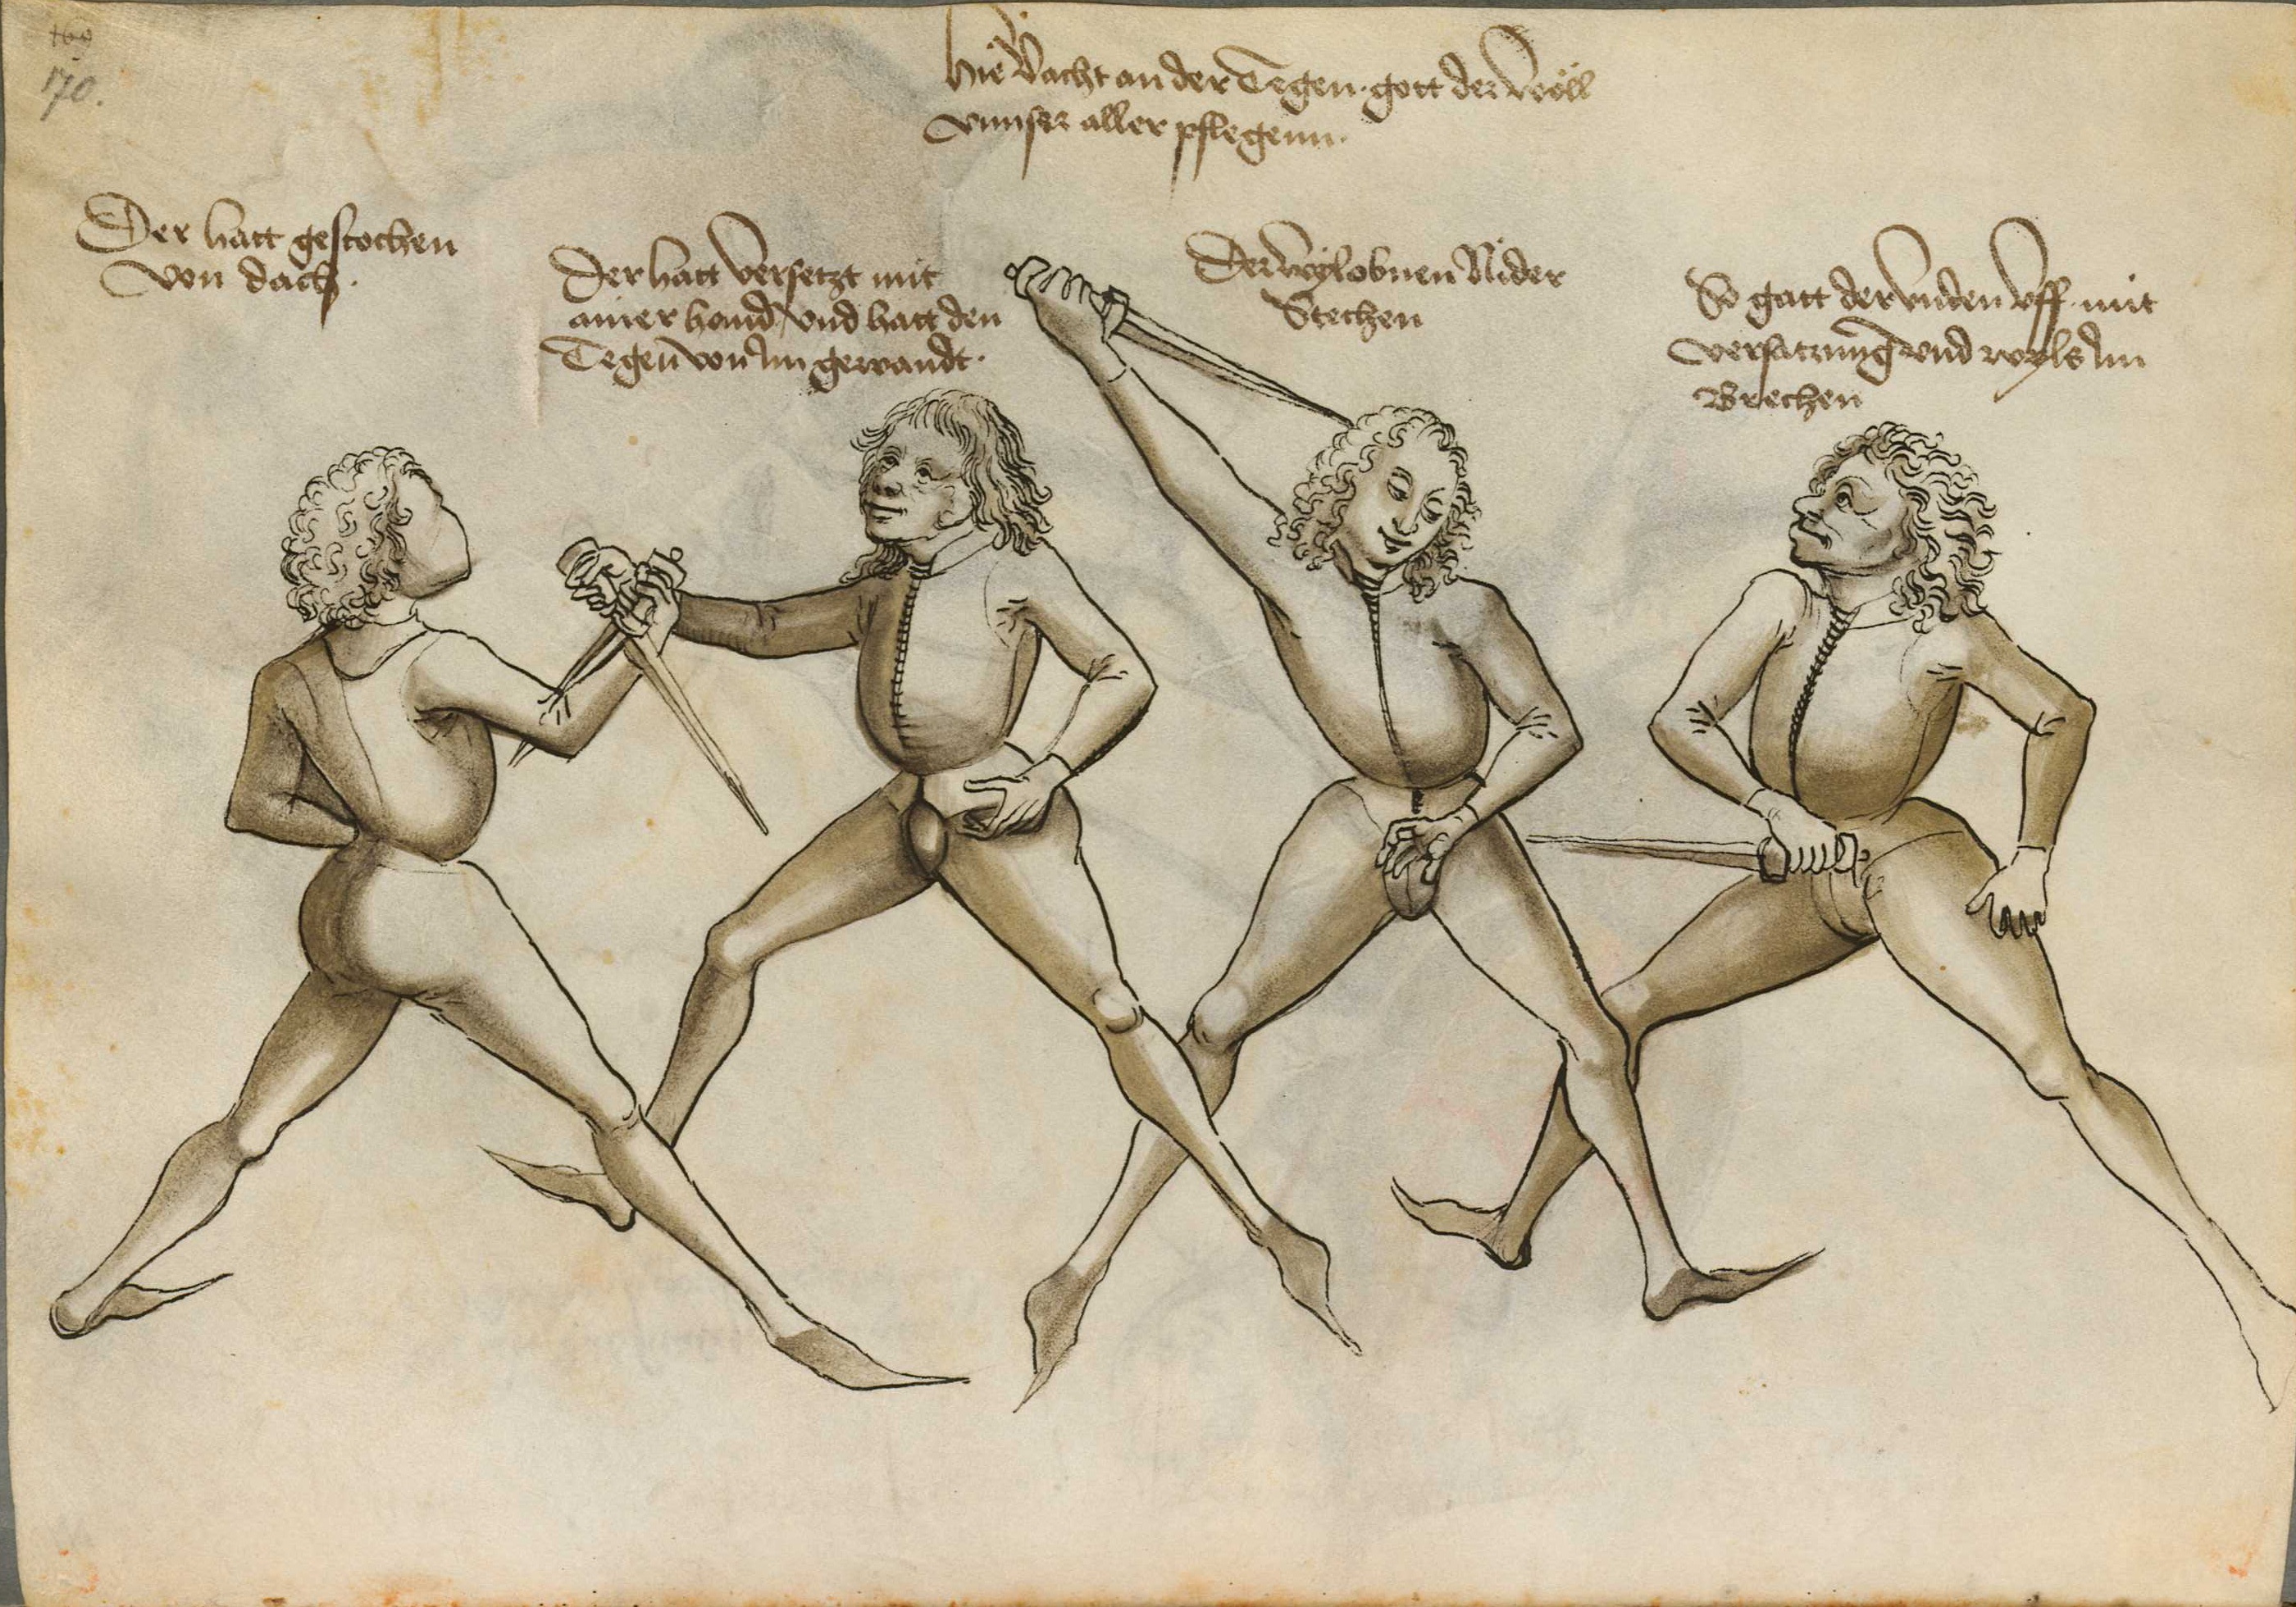 169
170.
Hie Vacht an der Tegen · gott der wöll
vnnser aller pflegenn ·
Der hatt gestochen
von dach ·
Der hatt Versetzt mit
ainer hand / vnd hatt den
Tegen von Im gewandt ·
Der wyl obnen Nider
Stechen
So gatt der Vnden Vff · mit
versatzung vnd wyls Im
Brechen